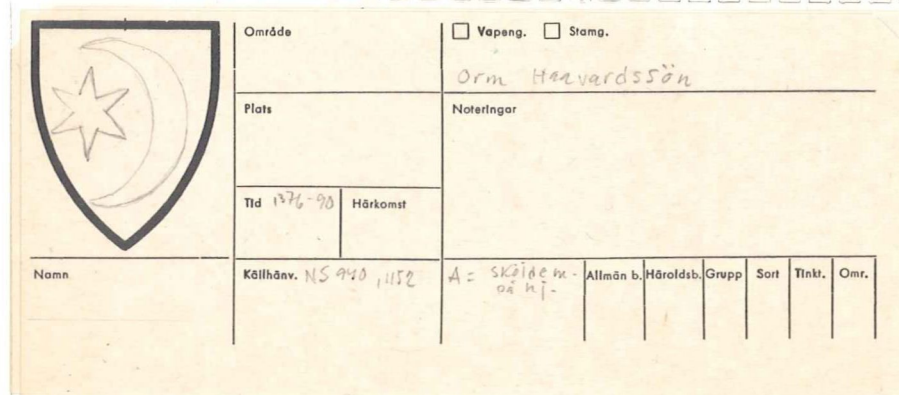 Område
☐ Vapeng. ☐ Stamg.
Orm Haavardssön
Plats
Noteringar
Tid 1376-90
Härkomst
Namn
Källhänv. NS 940, 1152
A = sköldem.-
på hj.-
Allmän b. Häroldsb. Grupp Sort Tinkt. Omr.